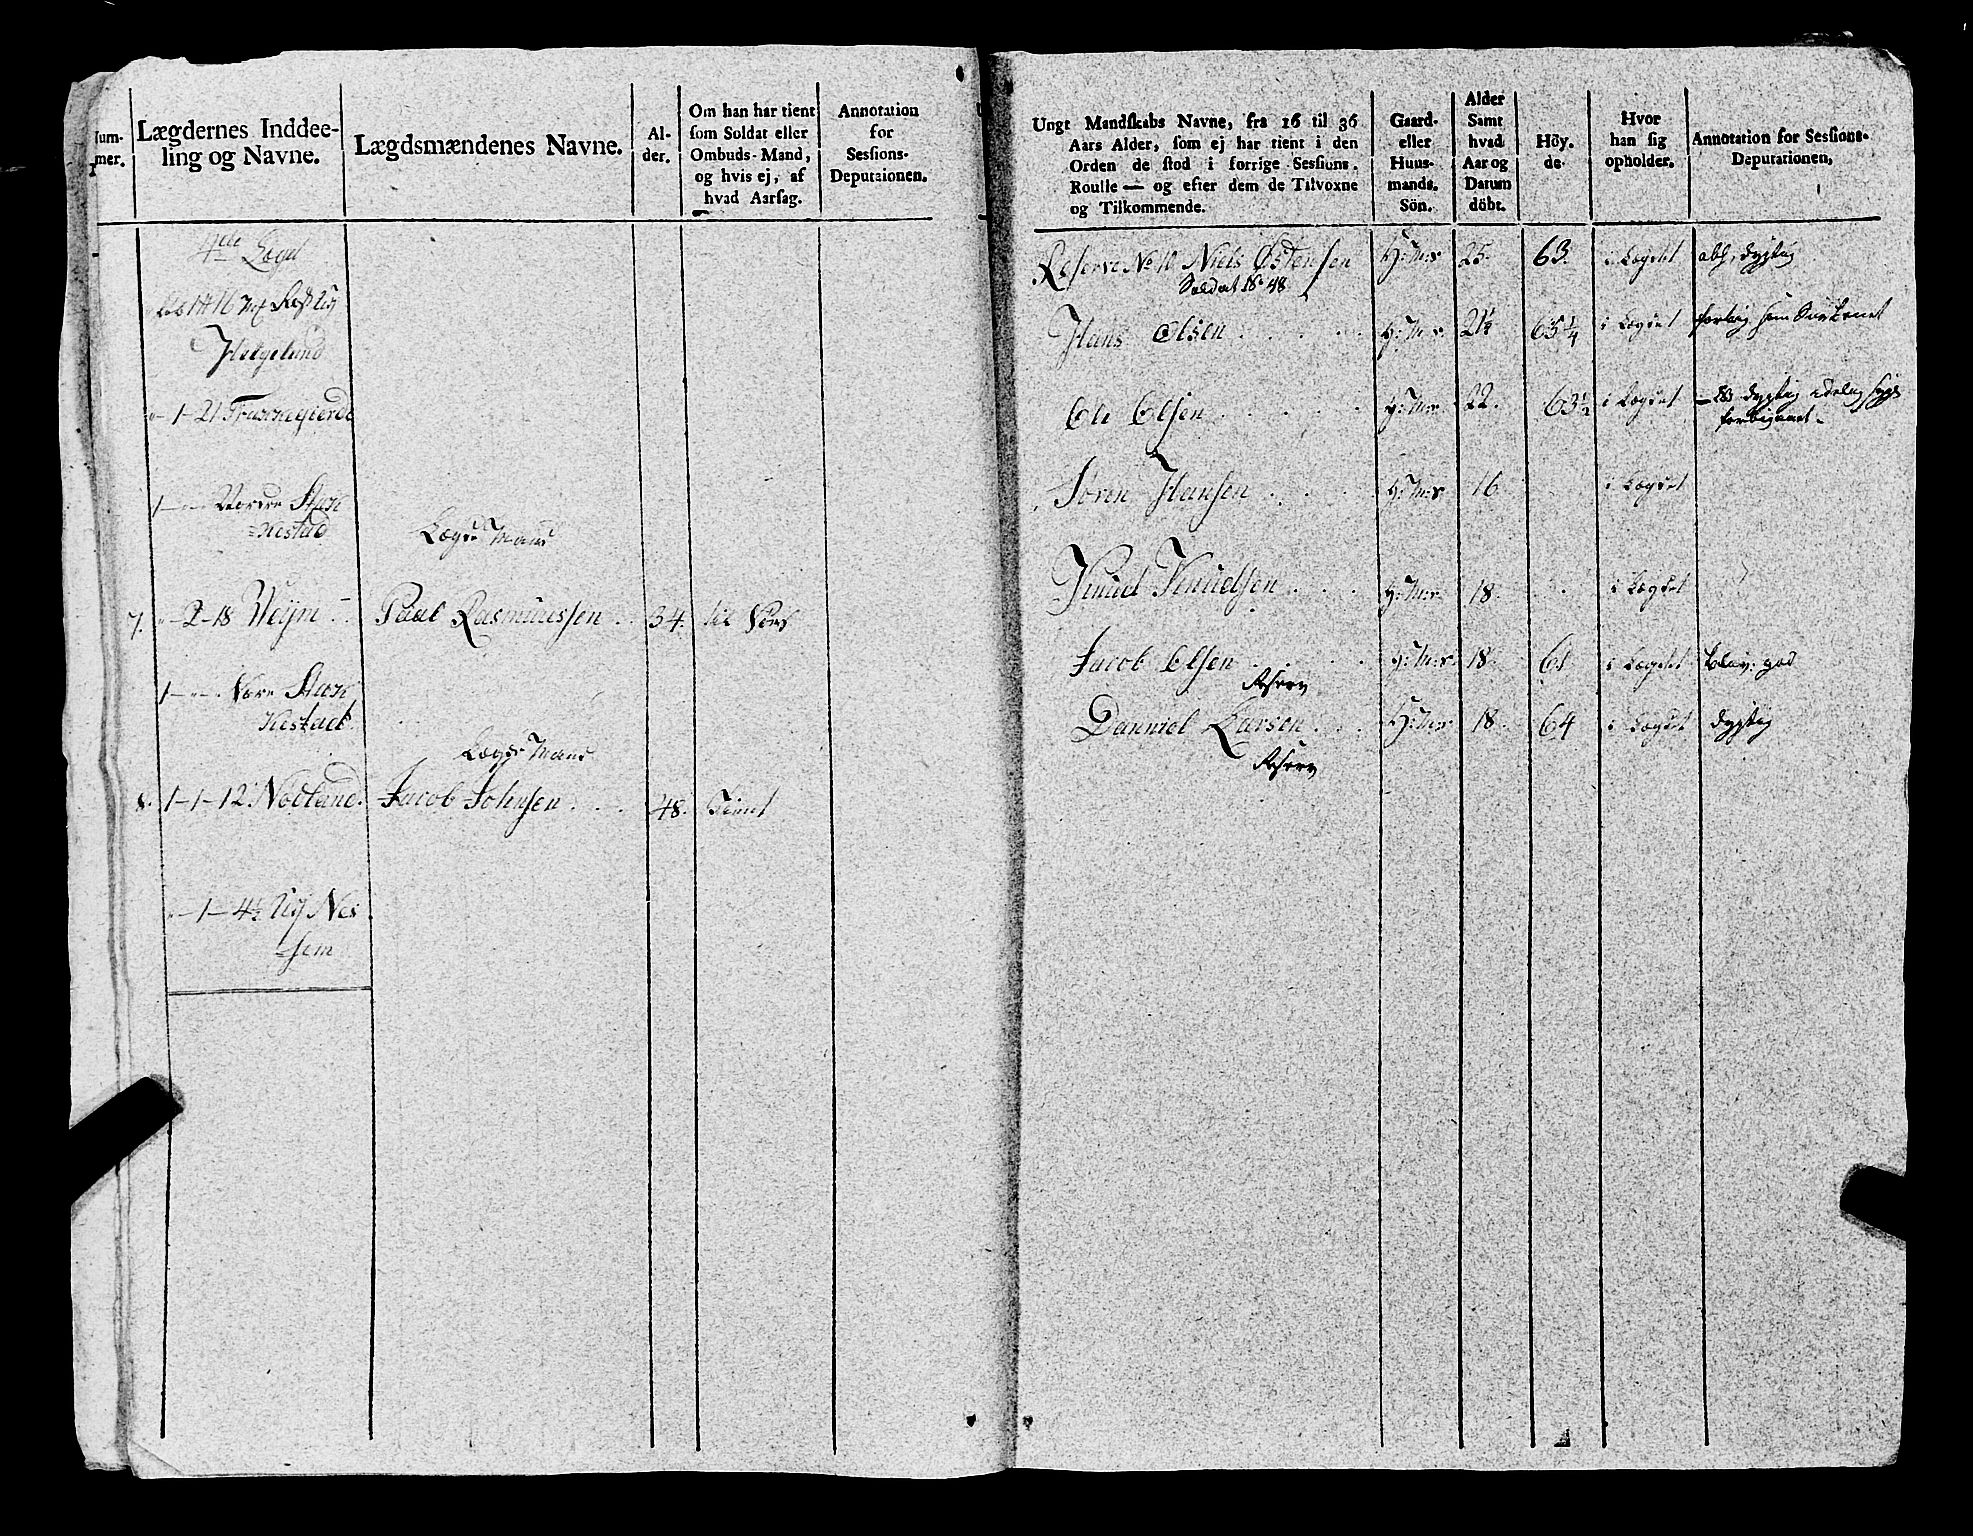 Num-
mer.
Lægdernes Inddee-
ling og Navne.
Lægdsmændenes Navne.
Al-
der.
Om han har tient
som Soldat eller
Ombuds-Mand,
og hvis ej, af
hvad Aarsag.
Annotation
for
Sessions-
Deputaionen.
4de Lægd
Helgeland
1-21
1-"- Nordre Skare
Kestad
Lægds Mand
7. "-2-18 Paal Rasmussen 34.
1-"- Søre
Kestad
Lægds Mand
8. 1-1-12 Nodland. Jacob Johnsen 48. Tient
"-1-4½ Nes
sem
Ungt Mandskabs Navne, fra 16 til 36
Aars Alder, som ej har tient i den
Orden de stod i forrige Sessions-
Roulle — og efter dem de Tilvoxne
og Tilkommende.
Gaard-
eller
Huus-
mands-
Sön.
Alder
Samt
hvad
Aar og
Datum
döbt.
Höy-
de.
Hvor
han sig
opholder.
Annotation for Sessions-
Deputationen,
Reserve No 10 Niels Østensen H:M:s 25. 63. i Lægdet dygtig
Soldat 18 48
Hans Olsen H:M:s 21½ 65¼ i Lægdet
Ole Olsen H:M:s 22. 63½ i Lægdet dygtig
forbigaaet.
Søren Hansen H:M:s 16 i Lægdet
Knud Knudsen H:M:s 18. i Lægdet
Jacob Olsen H:M:s 18. 61 i Lægdet god
Reserv
Danniel Larsen H:M:s 18. 64 i Lægdet dygtig
Reserv